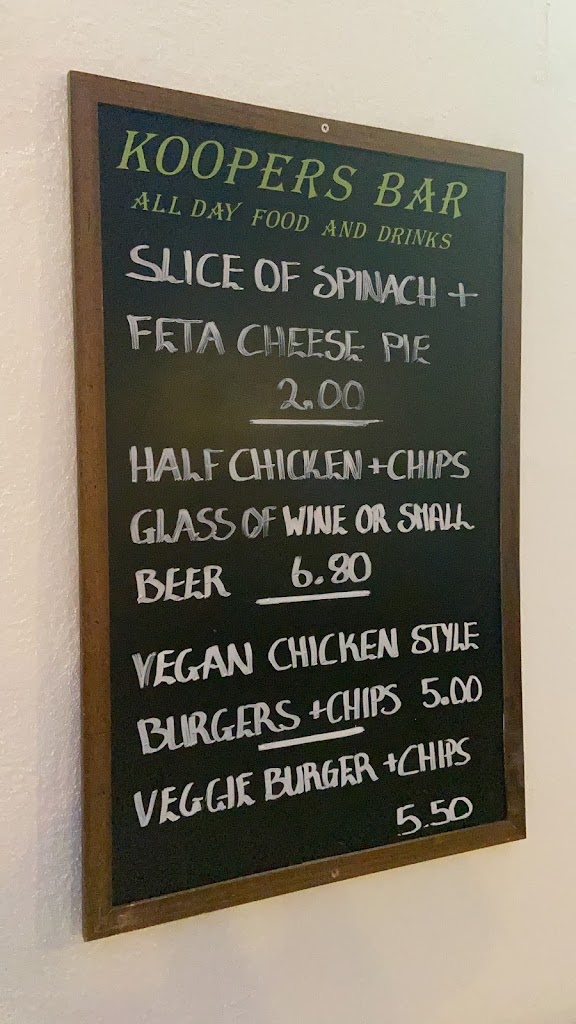 KOOPERS BAR
ALL DAY FOOD AND DRINKS
SLICE OF SPINACH +
FETA CHEESE PIE
2.00
HALF CHICKEN + CHIPS
GLASS OF WINE OR SMALL
BEER 6.80
VEGAN CHICKEN STYLE
BURGERS + CHIPS 5.00
VEGGIE BURGER + CHIPS
5.50